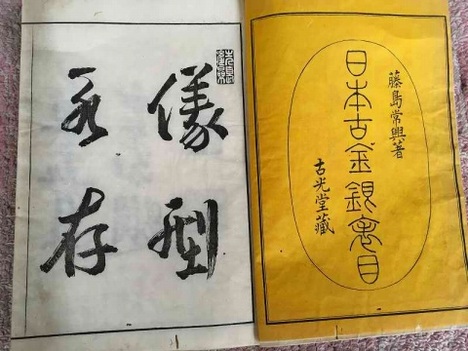 藤島常興著
日本古金銀表目
古光堂藏
儀型
永存